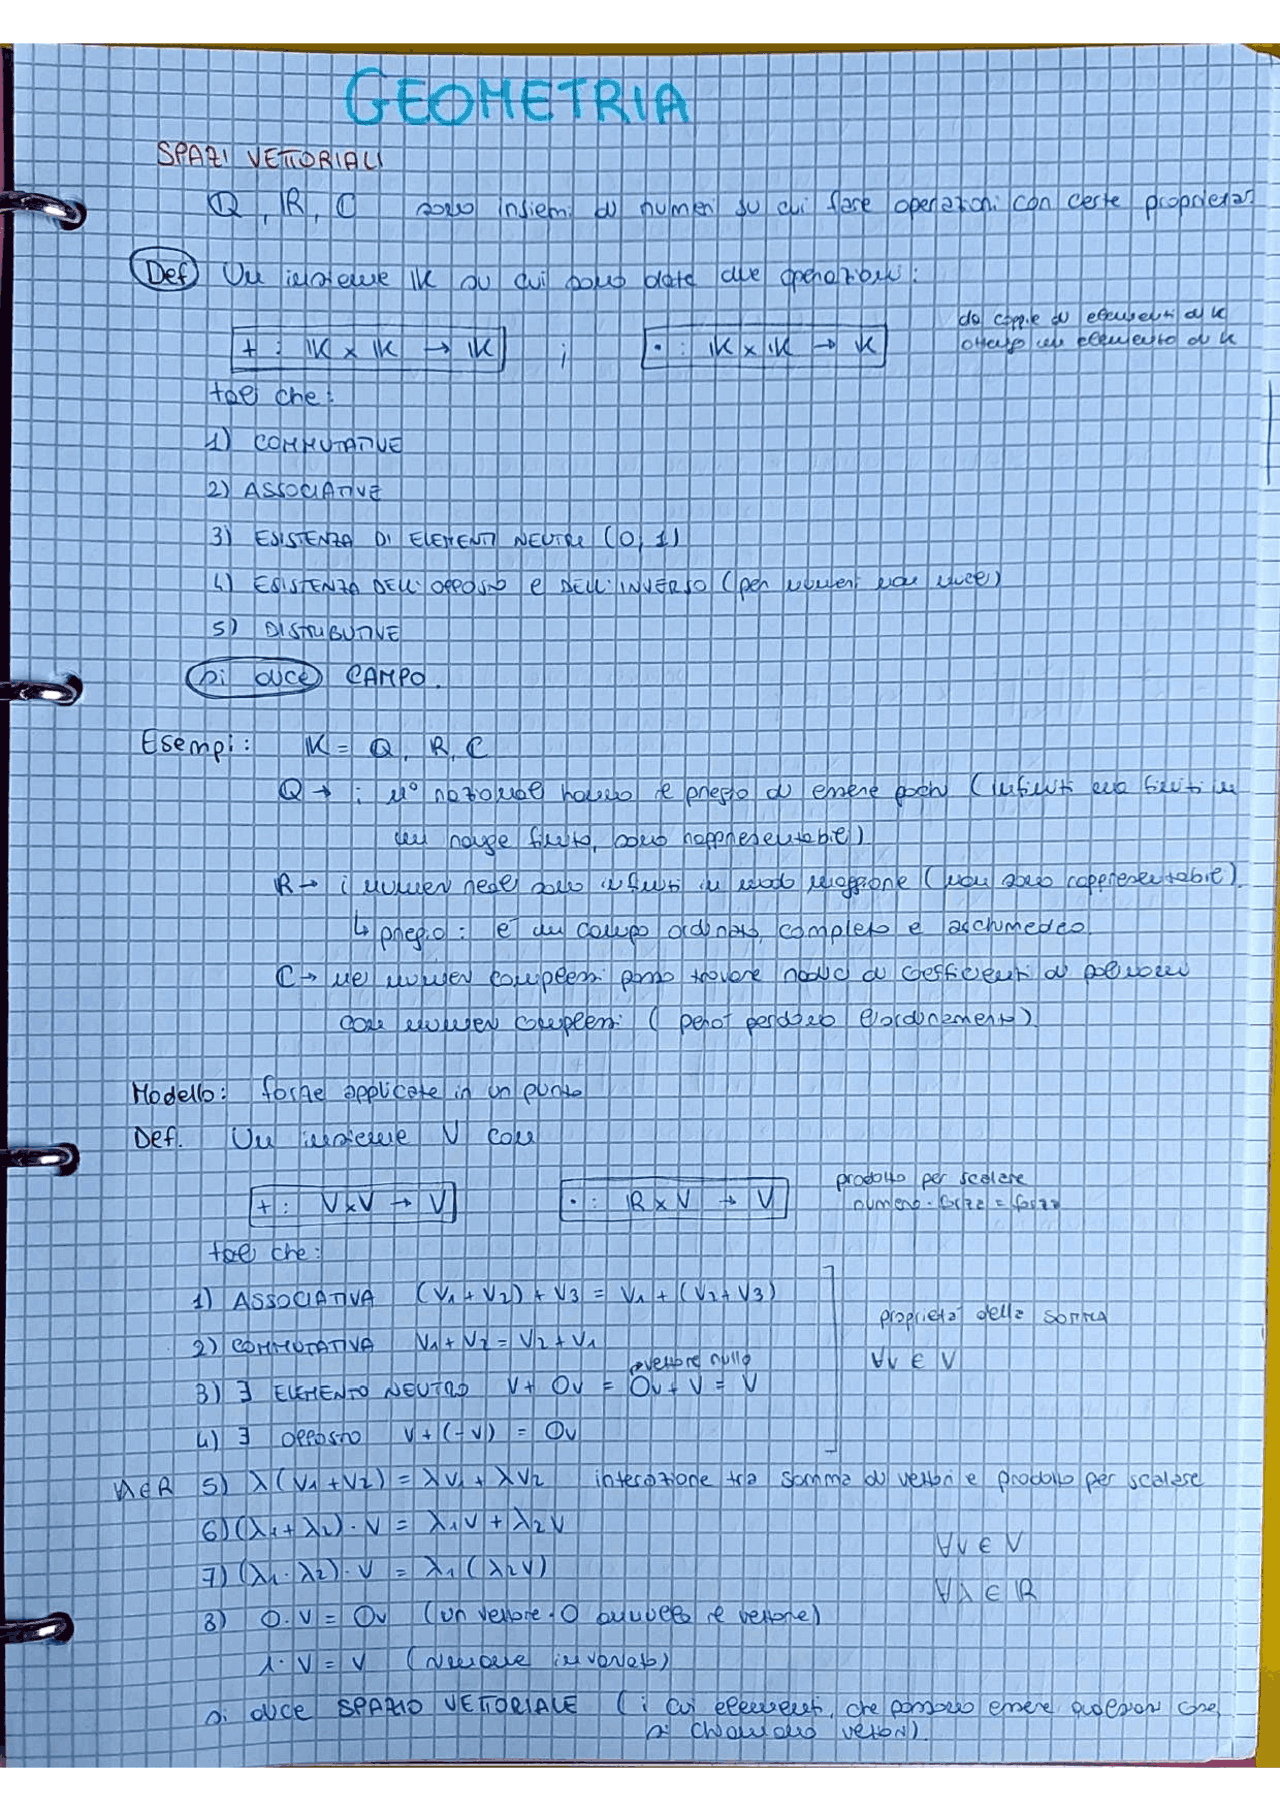 GEOMETRIA
SPAZI VETTORIALI
Q, R, C sono insiemi di numeri su cui fare operazioni con certe proprietà
Def Un insieme K su cui sono date due operazioni:
da coppie di elementi di K
+ : K x K → K ; • : K x K → K ottengo un elemento di K
tali che:
1) COMMUTATIVE
2) ASSOCIATIVE
3) ESISTENZA DI ELEMENTI NEUTRI (0, 1)
4) ESISTENZA DELL'OPPOSTO e DELL'INVERSO (per numeri non nulli)
5) DISTRIBUTIVE
si dice CAMPO.
Esempi: K = Q, R, C
Q → i n° razionali hanno il pregio di essere pochi (infiniti ma finiti in
un range finito, sono rappresentabili)
R → i numeri reali sono infiniti in modo maggiore (non sono rappresentabili)
↳ pregio: è un campo ordinato, completo e archimedeo
C → nei numeri complessi posso trovare radici di coefficienti di polinomi
con numeri complessi (però perdiamo l'ordinamento)
Modello: forze applicate in un punto
Def. Un insieme V con
prodotto per scalare
+ : V x V → V • : R x V → V numero · forza = forza
tali che:
1) ASSOCIATIVA (v1 + v2) + v3 = v1 + (v2 + v3)
proprietà della somma
2) COMMUTATIVA v1 + v2 = v2 + v1
vettore nullo ∀v ∈ V
3) ∃ ELEMENTO NEUTRO v + 0v = 0v + v = v
4) ∃ OPPOSTO v + (-v) = 0v
∀λ∈R 5) λ(v1 + v2) = λv1 + λv2 interazione tra somma di vettori e prodotto per scalare
6) (λ1 + λ2) · v = λ1v + λ2v
∀v ∈ V
7) (λ1 · λ2) · v = λ1(λ2v)
∀λ ∈ R
8) 0 · v = 0v (un vettore · 0 annulla il vettore)
1 · v = v (rimane invariato)
si dice SPAZIO VETTORIALE (i cui elementi, che possono essere qualsiasi cosa,
si chiamano vettori).